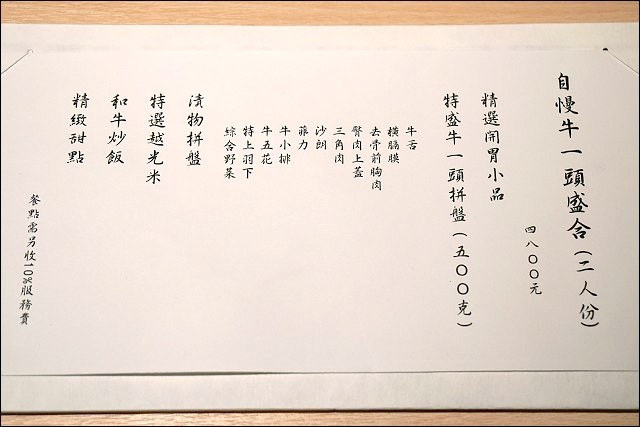 自慢牛一頭盛合(二人份)
四八〇〇元
精選開胃小品
特盛牛一頭拼盤(五〇〇克)
牛舌
橫膈膜
去骨前胸肉
臀肉上蓋
三角肉
沙朗
菲力
牛小排
牛五花
特上羽下
綜合野菜
漬物拼盤
特選越光米
和牛炒飯
精緻甜點
餐點需另收10%服務費